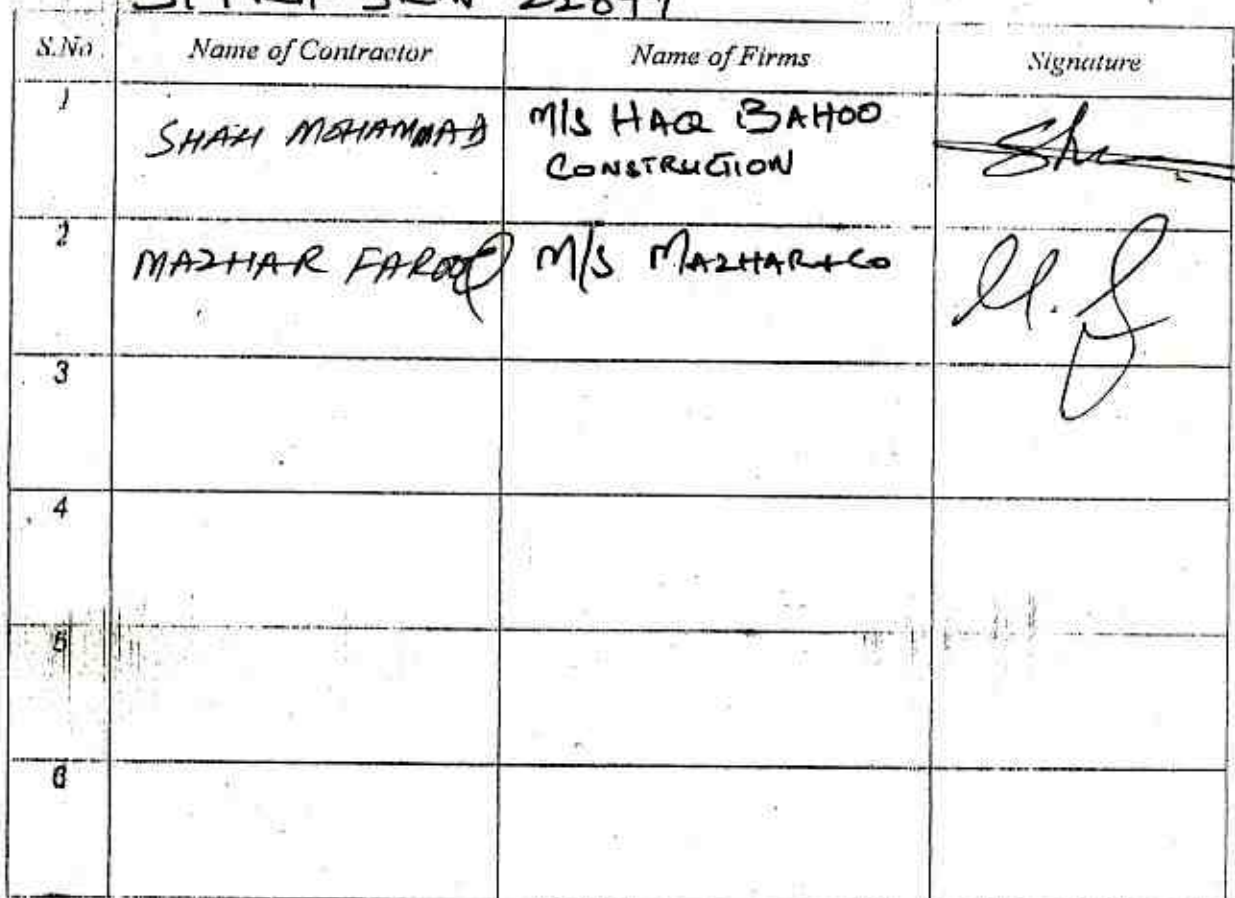 S.No Name of Contractor Name of Firms Signature
1 SHAH MOHAMMAD M/S HAQ BAHOO
CONSTRUCTION
2 MAZHAR FAROOQ M/S MAZHAR & CO
3
4
5
6